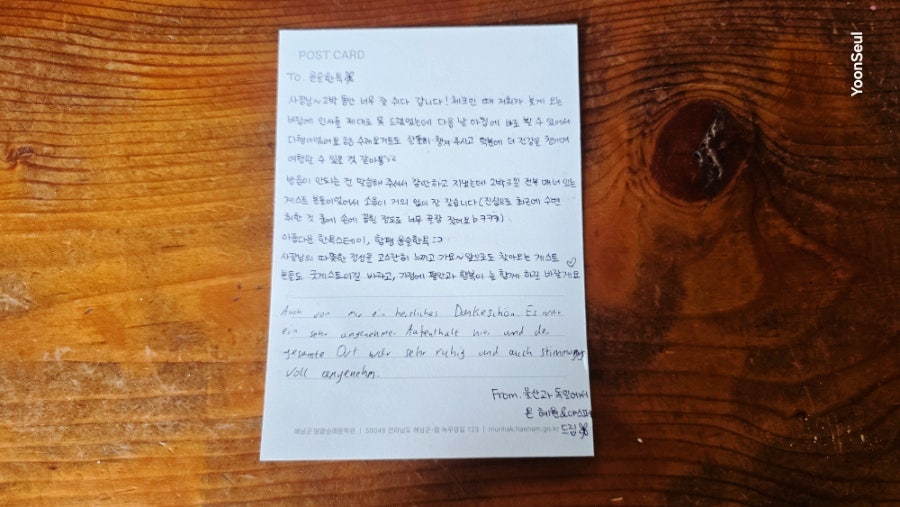 POST CARD
To. 윤슬한옥
사장님~ 2박 동안 너무 잘 쉬다 갑니다! 체크인 때 저희가 늦게 오는
바람에 인사를 제대로 못 드렸었는데 다음 날 아침에 바로 뵐 수 있어서
다행이었어요 수제요거트도 살뜰히 챙겨 주시고 덕분에 더 건강을 챙기며
여행할 수 있을 것 같아용ㅎㅎ
방음이 안되는 건 말씀해 주셔서 감안하고 지냈는데 2박3일 전부 매너있는
게스트 분들이었어서 소음이 거의 없이 잘 잤습니다 (진심으로 최근에 수면
취한 것 중에 손에 꼽힐 정도로 너무 꿀잠 잤어요b ㅋㅋㅋ)
아름다운 한옥스테이, 함평 윤슬한옥 :->
사장님의 따뜻한 정성을 고스란히 느끼고 가요~ 앞으로도 찾아오는 게스트
분들도 굿게스트이길 바라고, 가정에 평안과 행복이 늘 함께 하길 바랄게요 ♡
Auch von mir ein herzliches Dankeschön. Es war
ein sehr angenehmer Aufenthalt hier und der
gesamte Ort war sehr ruhig und auch stimmungs
voll angenehm.
From. 울산과 독일에서
온 혜원&야스퍼
드림
해남군 땅끝순례문학관 | 59046 전라남도 해남군·읍 녹우당길 123 | munhak.haenam.go.kr
YoonSeul